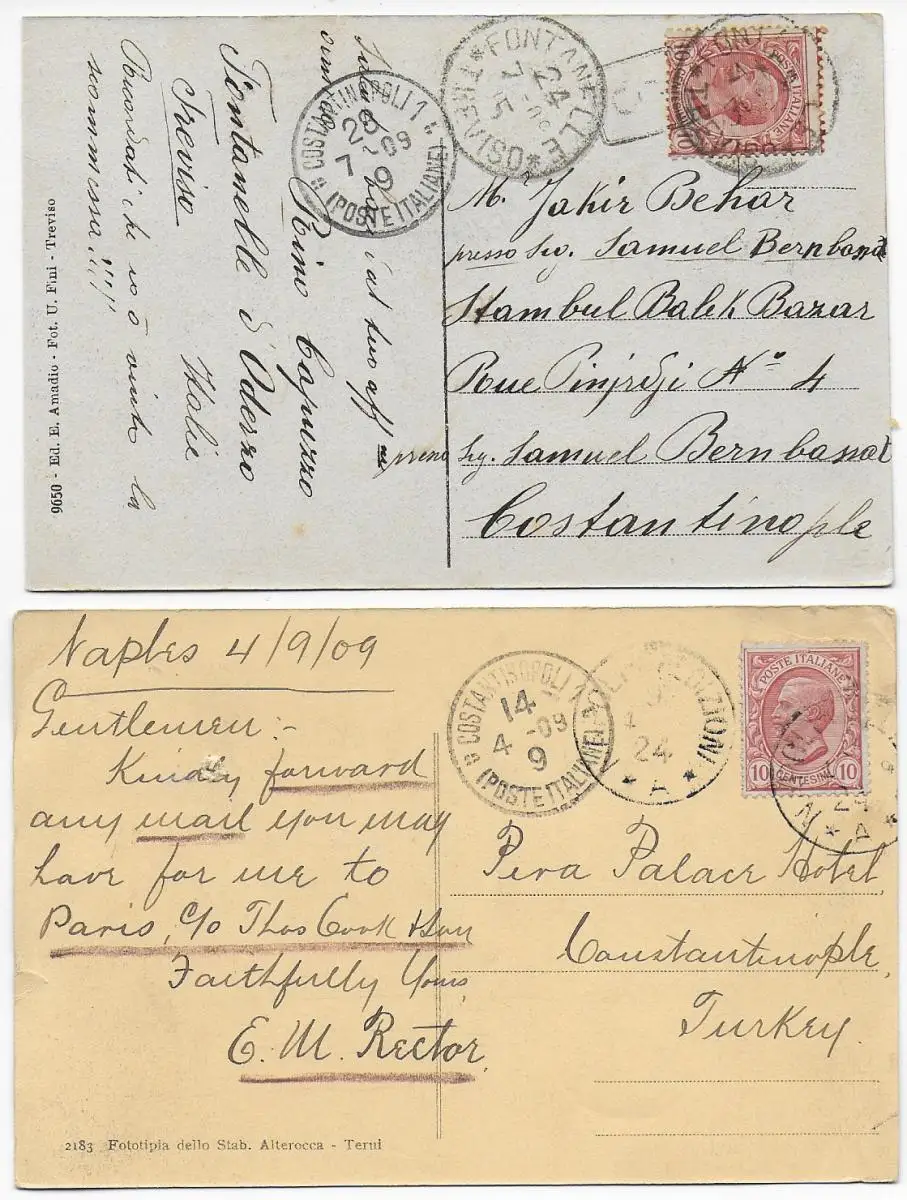 FONTANELLE
* TREVISO *
24
7
15
COSTANTINOPOLI 1
28
7 -09
9
(POSTE ITALIANE)
POSTE ITALIANE
M. Jakir Behar
presso Sig. Samuel Bernbassat
Stambul Balek Bazar
Rue Pinjrdji Nº 4
presso Sig. Samuel Bernbassat
Costantinople
dal tuo aff
Rino Capuzzo
Fontanelle d'Oderzo
Treviso Italie
Ricordati che io ò vinto la
sommessa!!!!
9650 - Ed. E. Amadio - Fot. U. Fini - Treviso
Naples 4/9/09
Gentlemen :-
Kindly forward
any mail you may
have for me to
Paris, c/o Thos Cook & Son
Faithfully Yours
E. M. Rector
COSTANTINOPOLI 1
14
4 -09
9
(POSTE ITALIANE)
24
* A *
POSTE ITALIANE
10 CENTESIMI 10
24
* A *
Pera Palace Hotel
Constantinople,
Turkey.
2183 Fototipia dello Stab. Alterocca - Terni